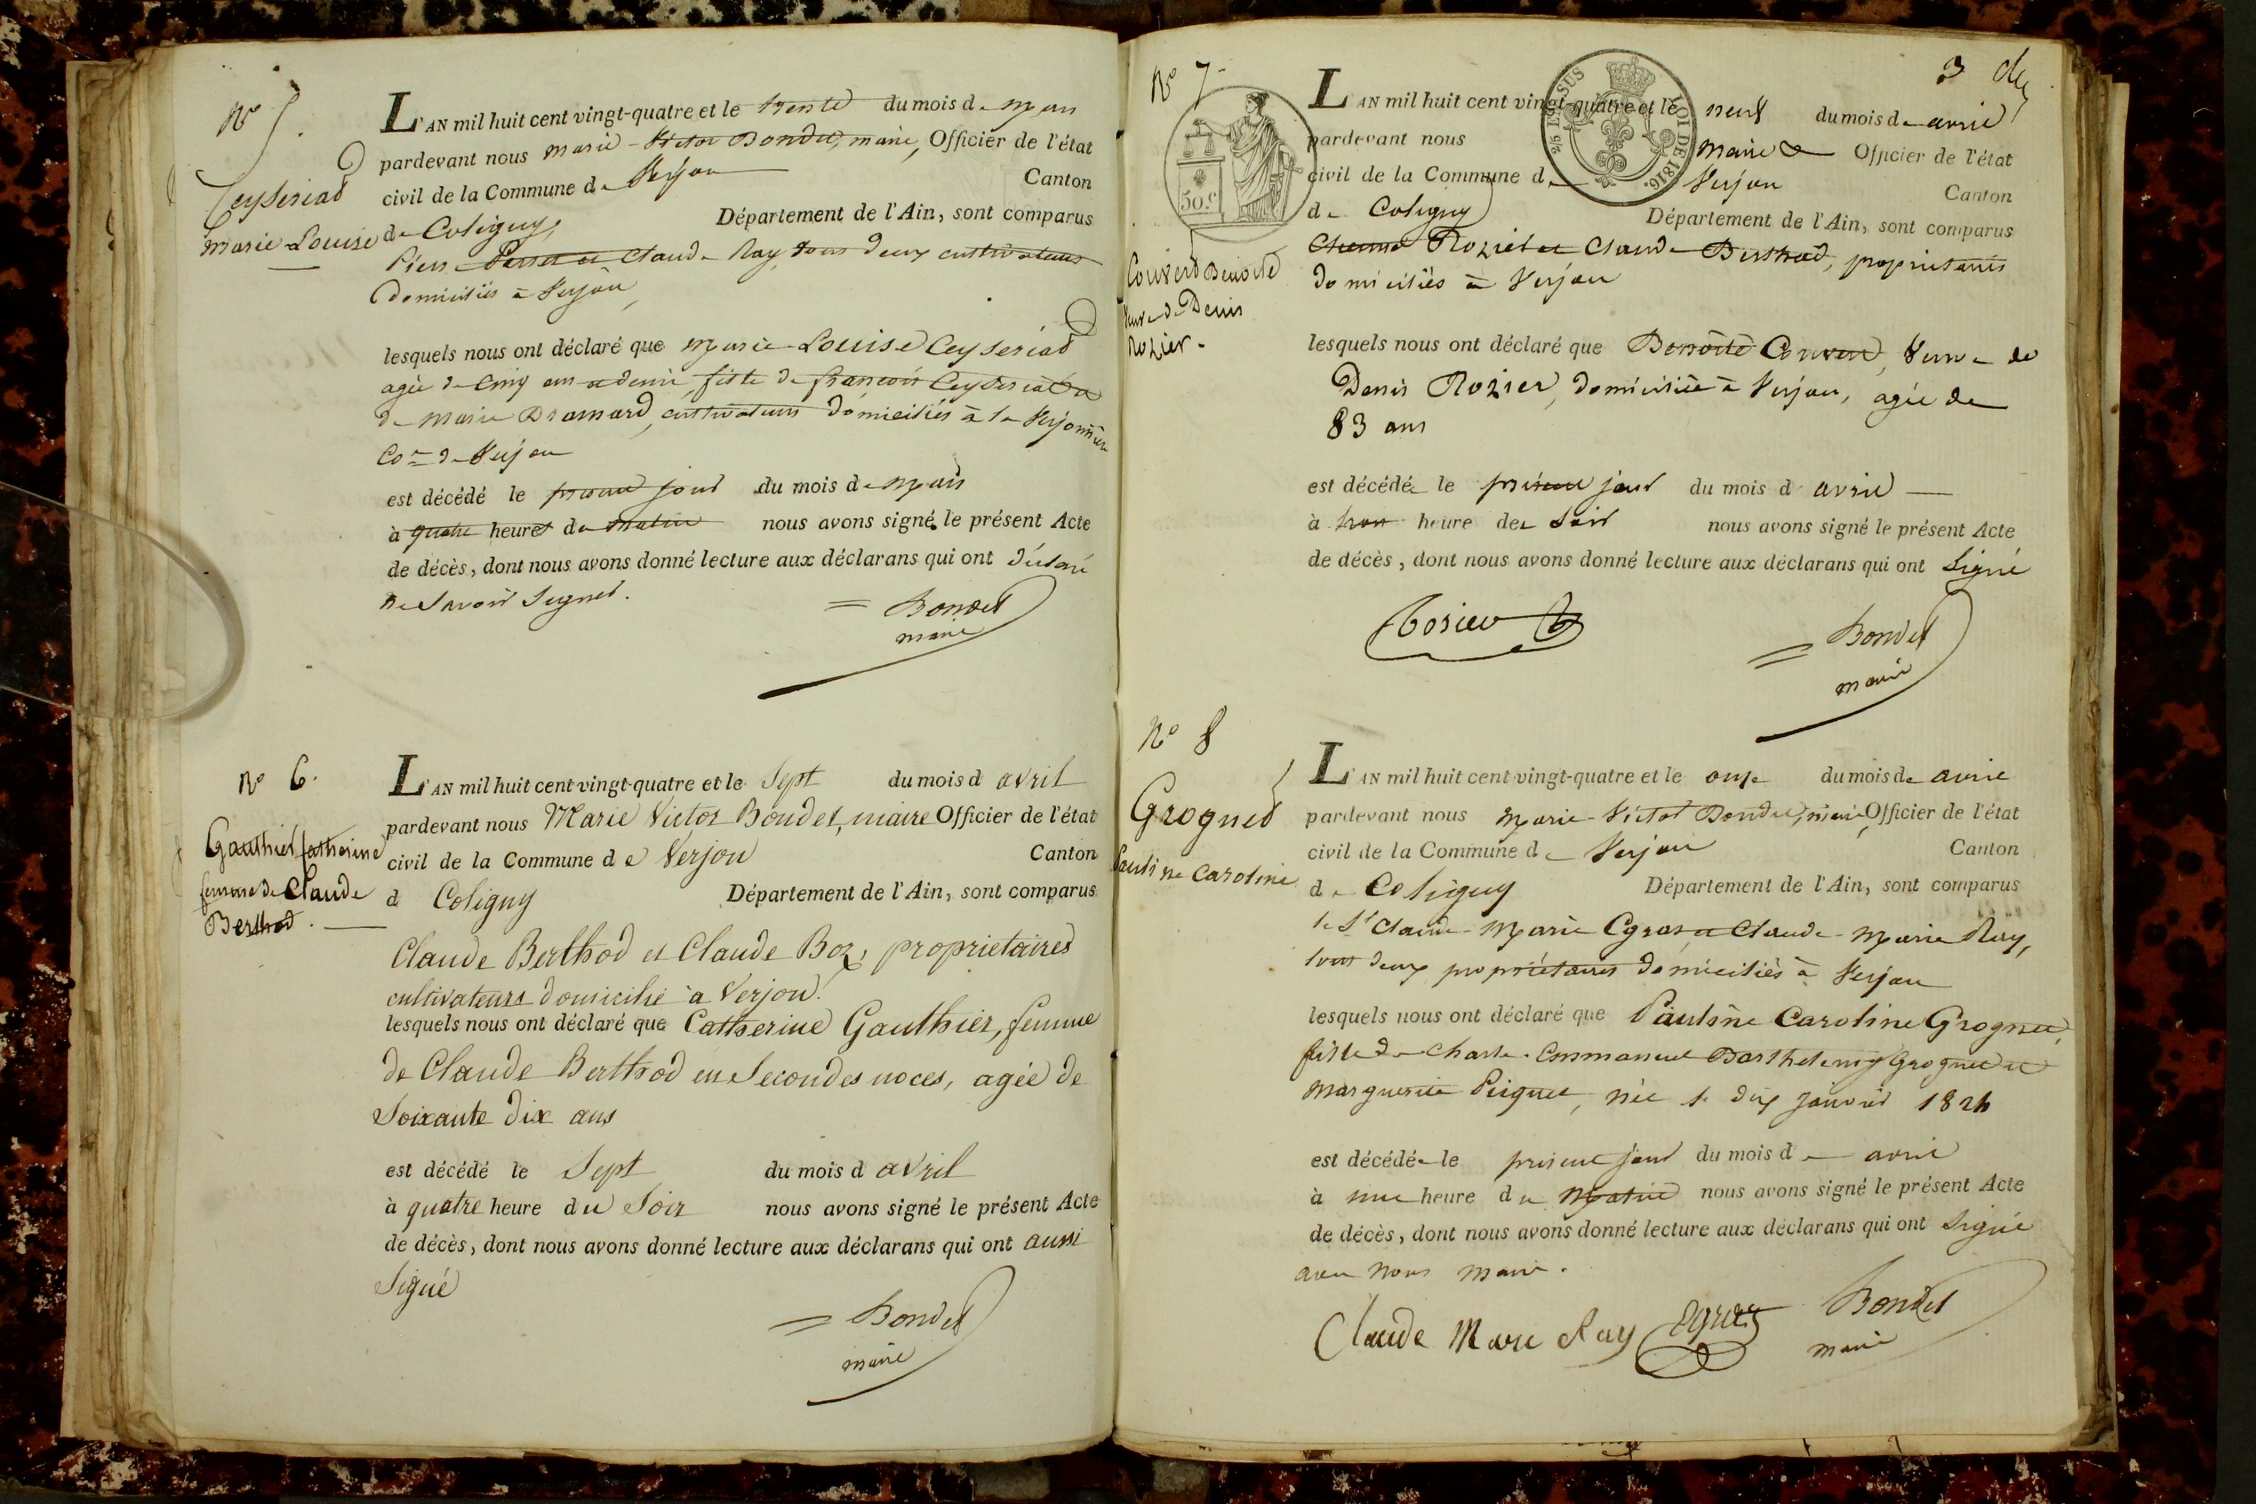 N° 5.
Ceyseriat
Marie-Louise
L'AN mil huit cent vingt-quatre et le trente du mois de mars
pardevant nous marie-Victor Bondet, maire, Officier de l'état
civil de la Commune de Verjon Canton
de Coligny, Département de l'Ain, sont comparus
Pierre et Claude Ray, tous deux cultivateurs
domiciliés à Verjon,
lesquels nous ont déclaré que Marie-Louise Ceyseriat
agée de cinq ans et demi, fille de françois Ceyseriat et
de Marie Dramard, cultivateurs domiciliés à la Verjonnière
Cne de Verjon
est décédé le présent jour du mois de mars
à quatre heures du matin nous avons signé le présent Acte
de décès, dont nous avons donné lecture aux déclarans qui ont déclaré
ne savoir signer.
= Bondet
maire
N° 6.
Gauthier Catherine
femme de Claude
Berthod.
L'AN mil huit cent vingt-quatre et le Sept du mois d avril
pardevant nous Marie Victor Bondet, maire Officier de l'état
civil de la Commune de Verjon Canton
d Coligny Département de l'Ain, sont comparus
Claude Berthod et Claude Boz, proprietaires
cultivateurs domicilié à Verjon.
lesquels nous ont déclaré que Catherine Gauthier, femme
de Claude Berthod en Secondes noces, agée de
Soixante dix ans
est décédé le Sept du mois d avril
à quatre heure du Soir nous avons signé le présent Acte
de décès, dont nous avons donné lecture aux déclarans qui ont aussi
Signé
= Bondet
maire
3
N° 7
2/5 EN SUS
LOI DE 1816.
50.c
Convert Benoite
veuve de Denis
Rozier.
L'AN mil huit cent vingt-quatre et le neuf du mois de avril
pardevant nous maire Officier de l'état
civil de la Commune de Verjon Canton
de Coligny Département de l'Ain, sont comparus
Rozier et Claude Berthod, proprietaires
domiciliés à Verjon
lesquels nous ont déclaré que Benoite Convert, Veuve de
Denis Rozier, domiciliée à Verjon, agée de
83 ans
est décédée le présent jour du mois d avril
à trois heure de soir nous avons signé le présent Acte
de décès, dont nous avons donné lecture aux déclarans qui ont Signé
Rosier
= Bondet
maire
N° 8
Grognet
Pauline Caroline
L'AN mil huit cent vingt-quatre et le onze du mois de avril
pardevant nous Marie-Victor Bondet, maire, Officier de l'état
civil de la Commune de Verjon Canton
de Coligny Département de l'Ain, sont comparus
le Sr Claude-Marie Egraz et Claude-Marie Ray,
tous deux propriétaires domiciliés à Verjon
lesquels nous ont déclaré que Pauline Caroline Grognet,
fille de Charle-Emmanuel Barthelemy Grognet et
Marguerite Puiguet, née le dix janvier 1824
est décédée le présent jour du mois de avril
à une heure du Matin nous avons signé le présent Acte
de décès, dont nous avons donné lecture aux déclarans qui ont Signé
avec nous maire.
Claude Marie Ray Egraz Bondet
maire